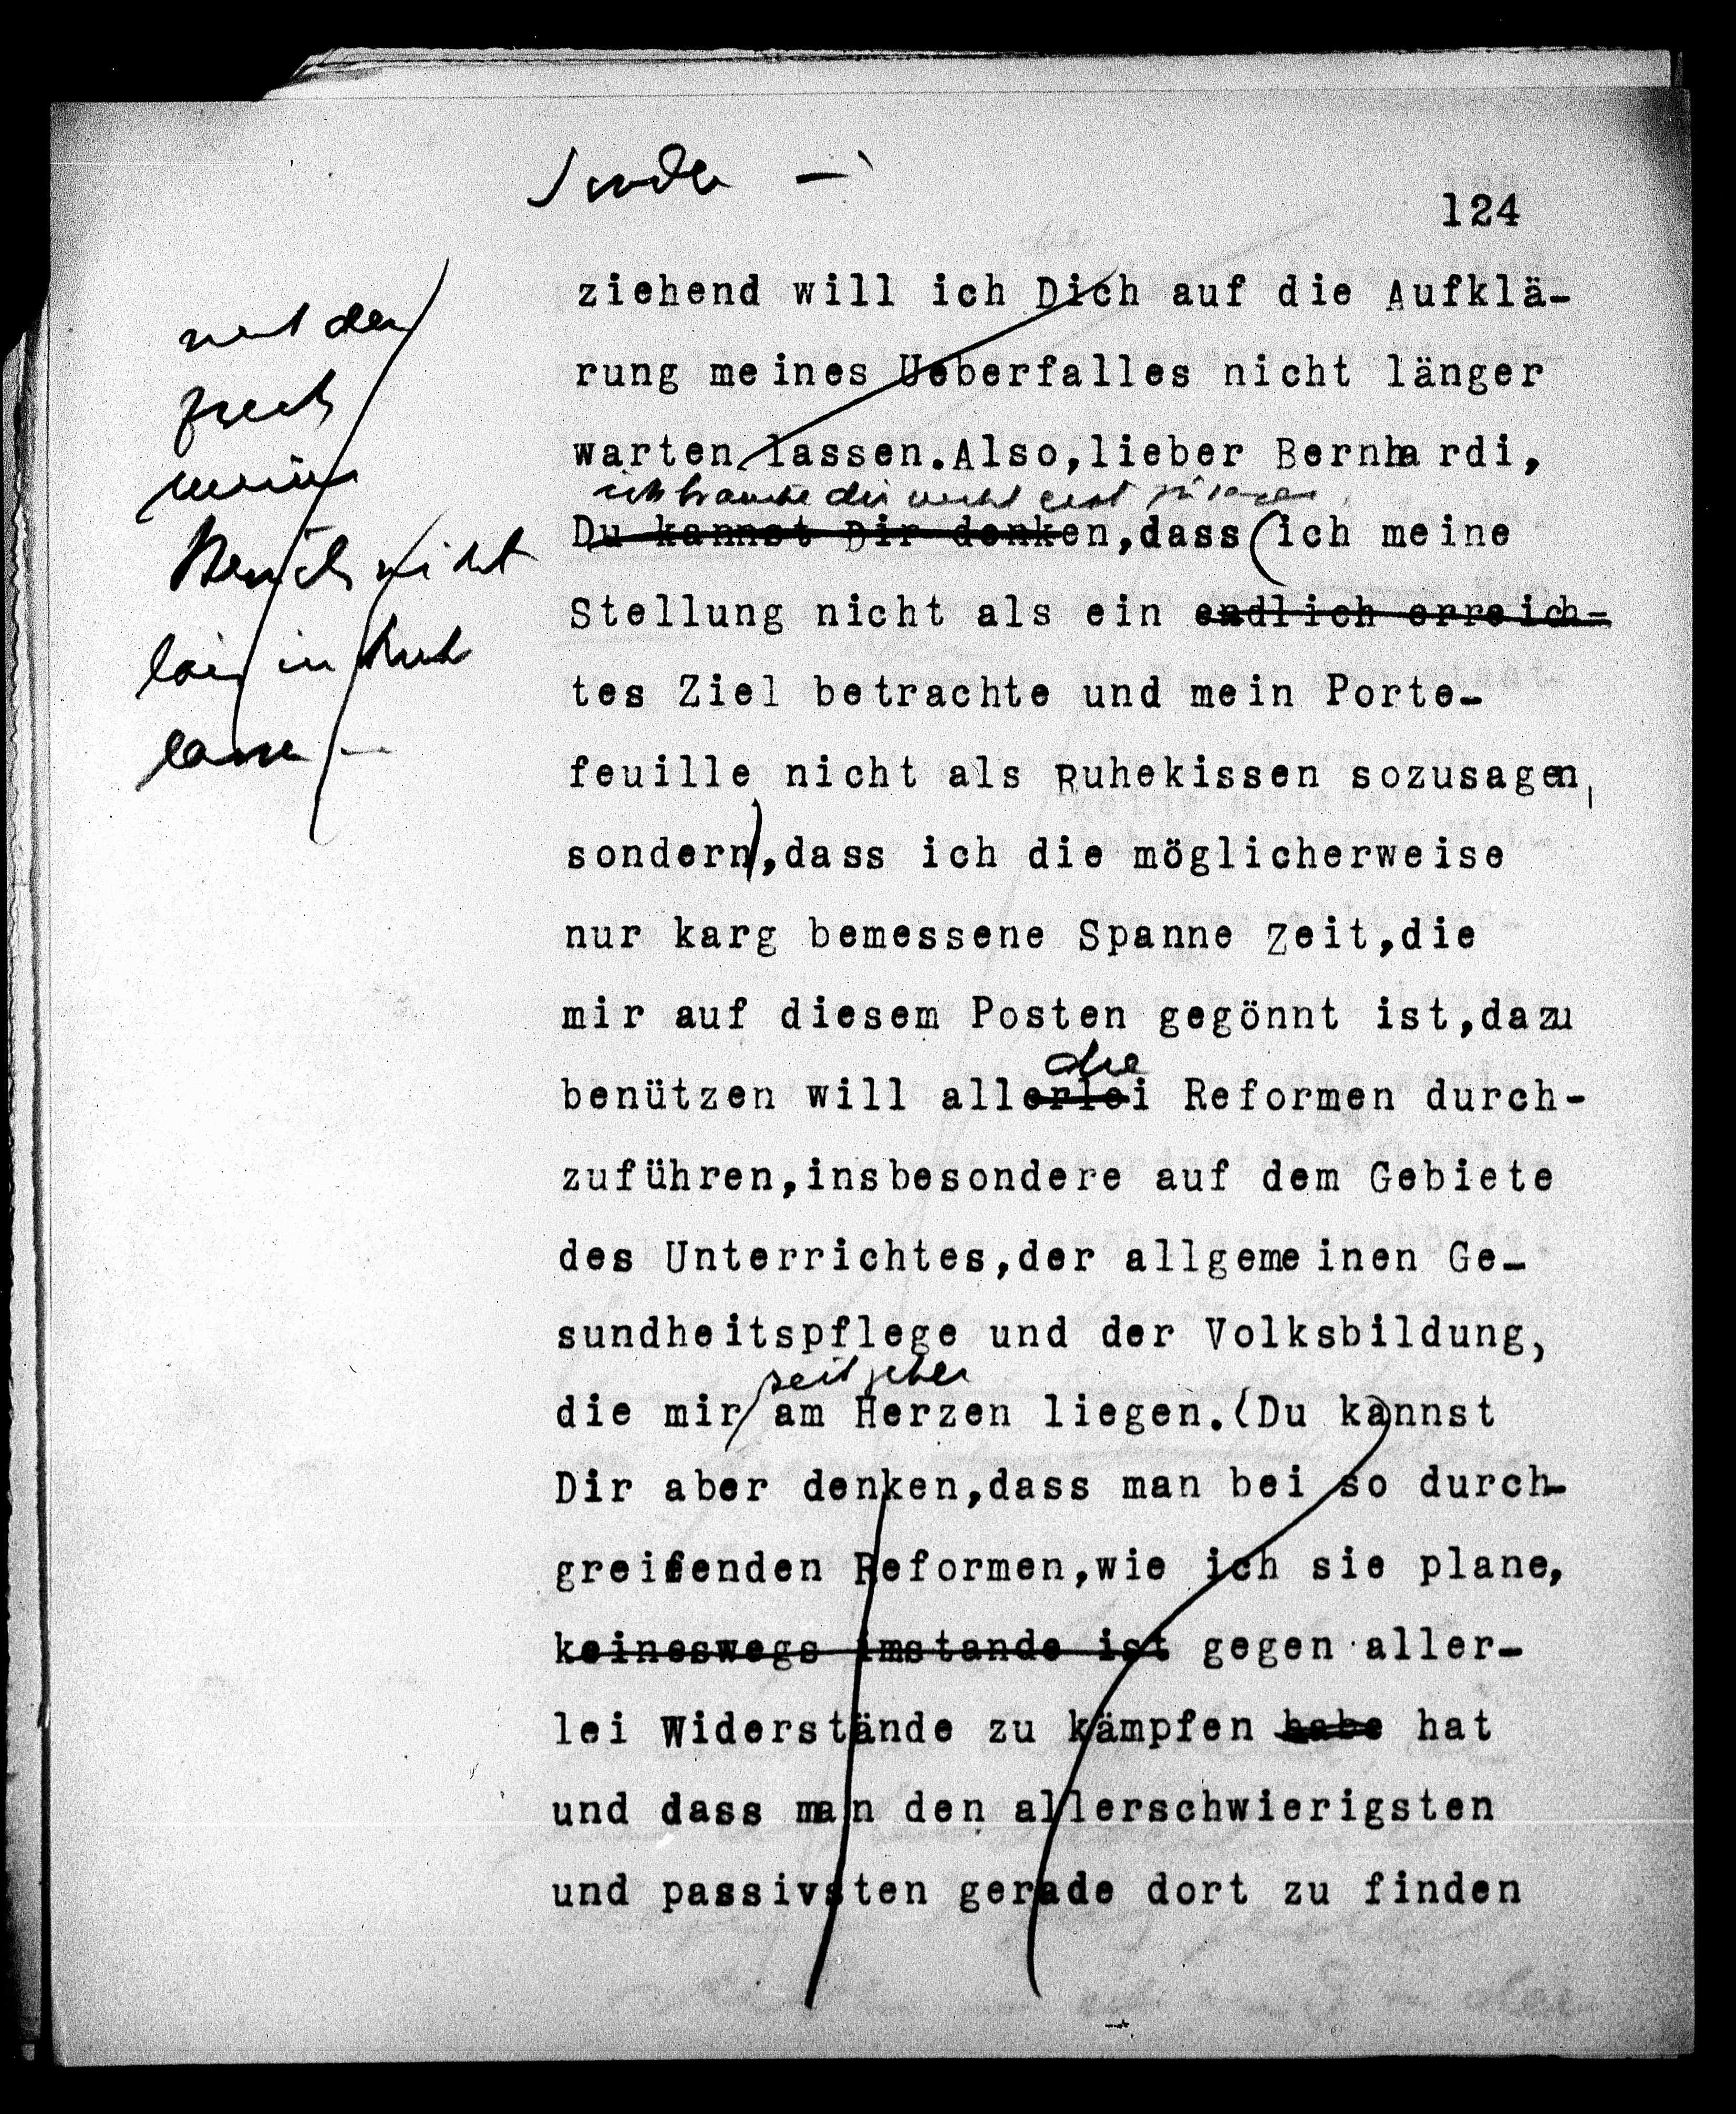 124
ziehend will ich Dich auf die Aufklä-
rung meines Ueberfalles nicht länger
warten lassen.Also,lieber Bernhardi,
ich brauche dir nicht erst zu sagen
Du kannst Dir denken,dass (ich meine
Stellung nicht als ein endlich erreich-
tes Ziel betrachte und mein Porte-
feuille nicht als Ruhekissen sozusagen,
sondern),dass ich die möglicherweise
nur karg bemessene Spanne Zeit,die
mir auf diesem Posten gegönnt ist,dazu
die
benützen will allerlei Reformen durch-
zuführen,insbesondere auf dem Gebiete
des Unterrichtes,der allgemeinen Ge-
sundheitspflege und der Volksbildung,
seit jeher
die mir am Herzen liegen.(Du kannst
Dir aber denken,dass man bei so durch-
greifenden Reformen,wie ich sie plane,
keineswegs imstande ist gegen aller-
lei Widerstände zu kämpfen habe hat
und dass man den allerschwierigsten
und passivsten gerade dort zu finden
nicht
in